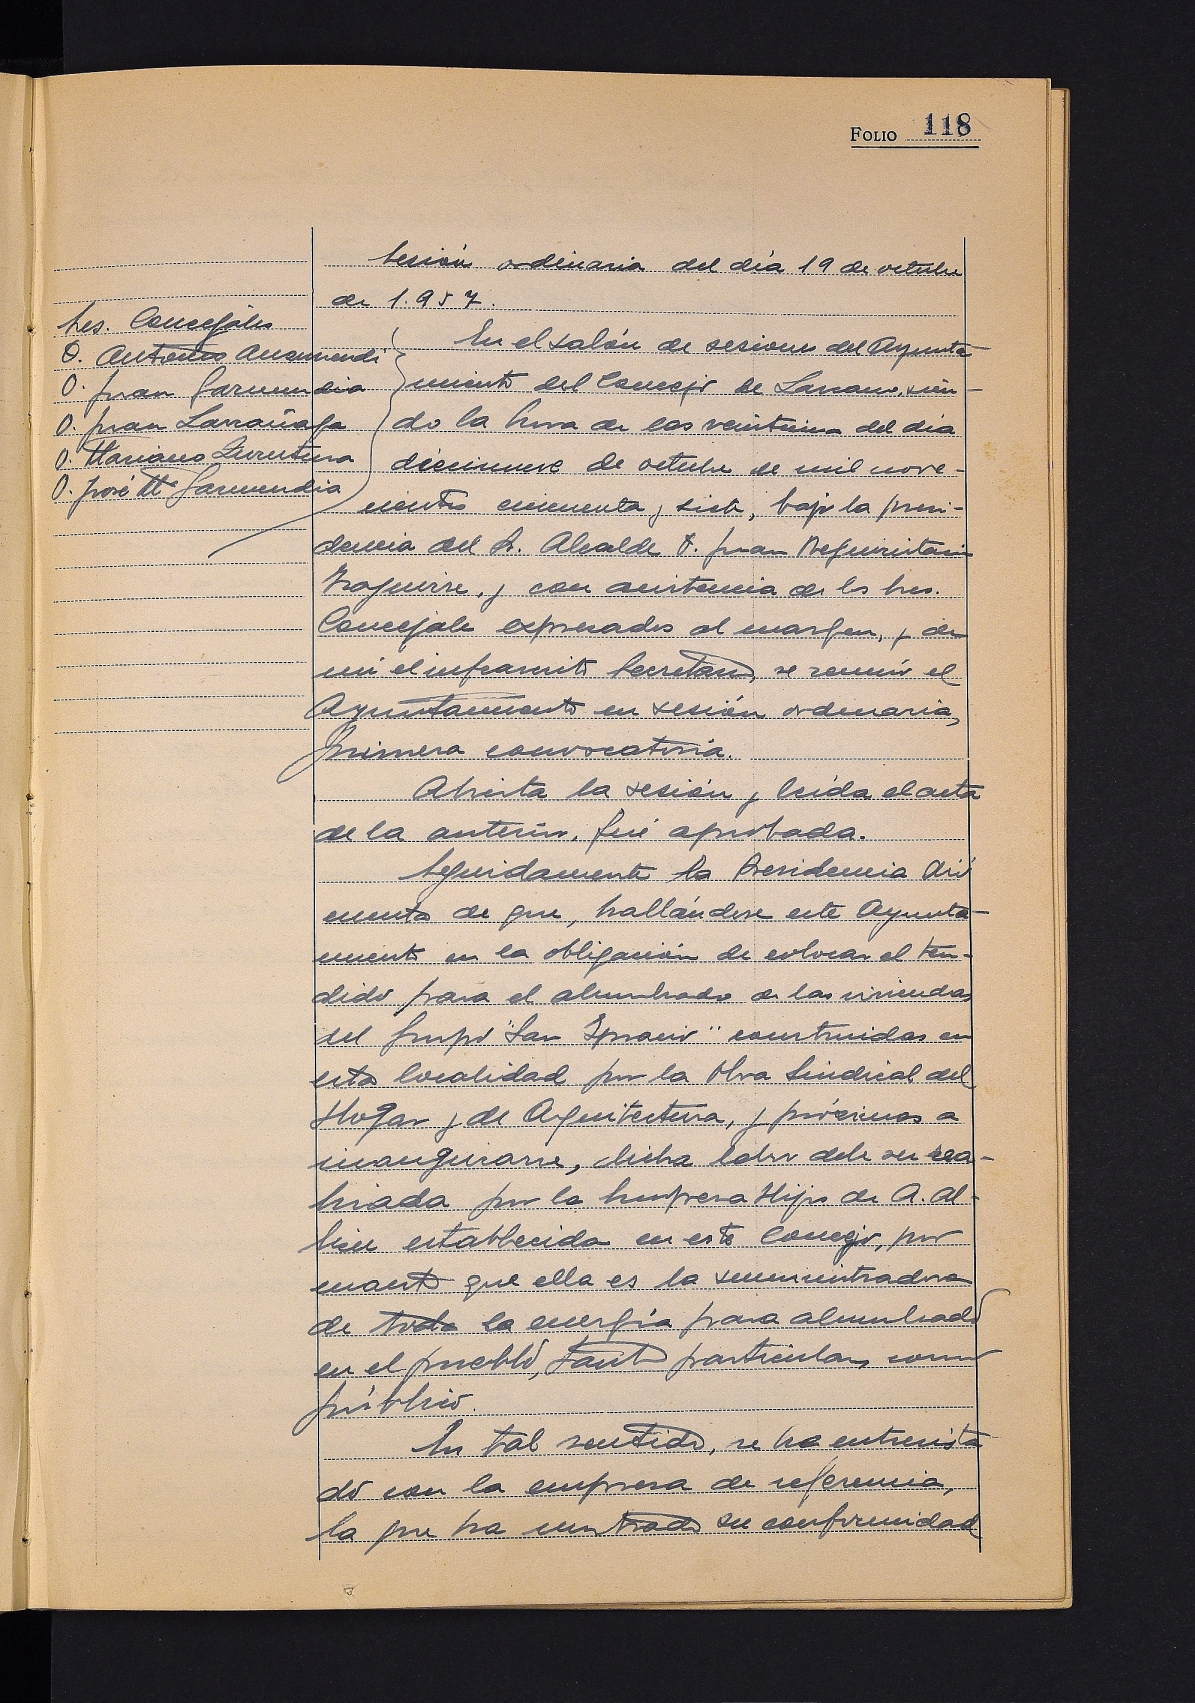 FOLIO 118
Sesión ordinaria del día 19 de octubre
de 1.957.
Sres. Concejales
D. Antonio Ansamendi
D. Juan Garmendia
D. Juan Larrañaga
D. Mariano
D. José Mª Garmendia
En el salón de sesiones del Ayunta-
miento del Concejo de Lazcano, sien-
do la hora de las veintiuna del día
diecinueve de octubre de mil nove-
cientos cincuenta y siete, bajo la presi-
dencia del Sr. Alcalde D. Juan Beguiristain
Izaguirre, y con asistencia de los Sres.
Concejales expresados al margen, y de
mi el infrascrito Secretario, se reunió el
Ayuntamiento en sesión ordinaria,
primera convocatoria.
Abierta la sesión y leída el acta
de la anterior, fué aprobada.
Seguidamente la Presidencia dió
cuenta de que, hallándose este Ayunta-
miento en la obligación de colocar el ten-
dido para el alumbrado de las viviendas
del Grupo "San Ignacio" construidas en
esta localidad por la Obra Sindical del
Hogar y de Arquitectura, y próximas a
inaugurarse, dicha labor debe ser rea-
lizada por la Empresa Hijos de A. Al-
bisu establecida en este Concejo, por
cuanto que ella es la suministradora
de toda la energía para alumbrado
en el pueblo, tanto particular como
público.
En tal sentido, se ha entrevista
do con la empresa de referencia,
la que ha mostrado su conformidad